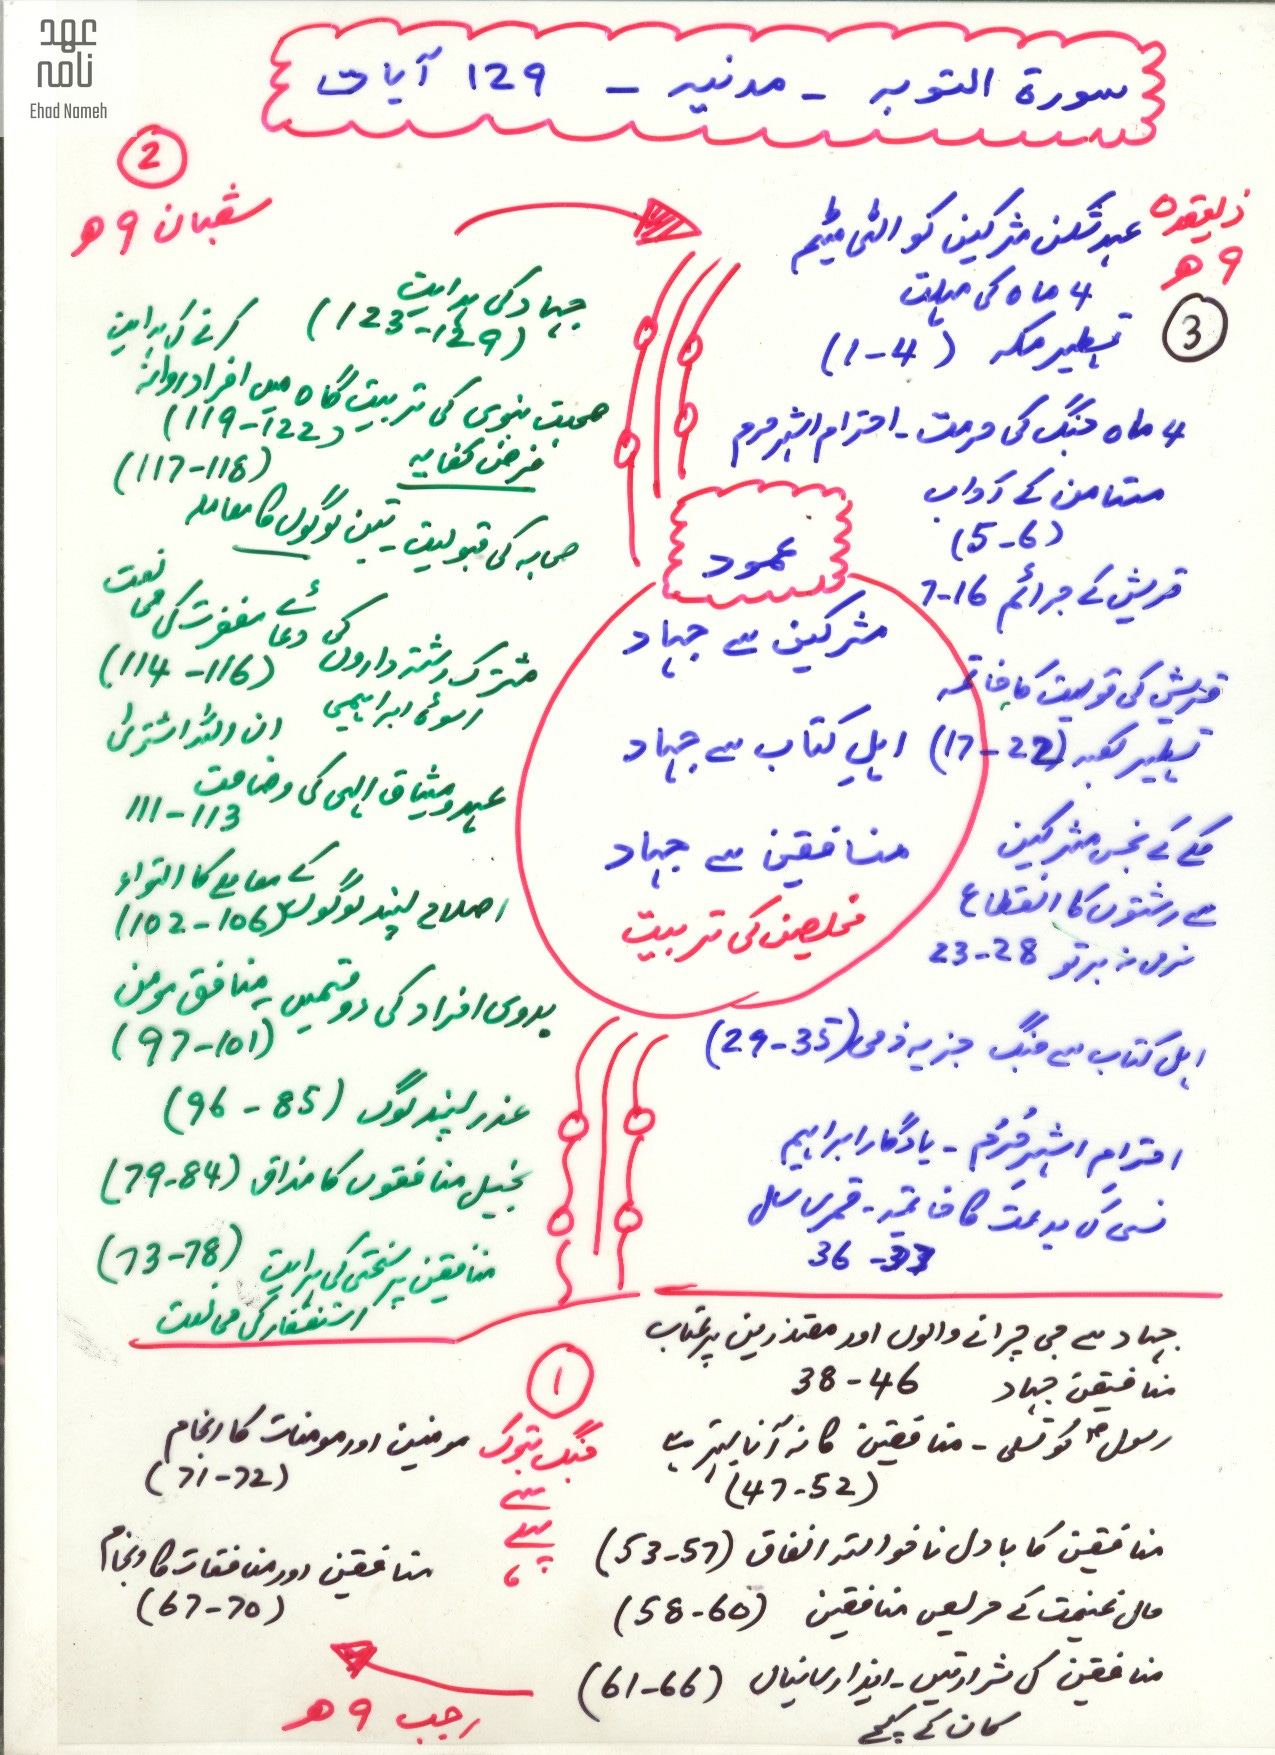 عہد
نامہ
Ehad Nameh
سورۃ التوبہ - مدنیہ - 129 آیات
2
شعبان 9ھ
ذیقعدہ
9ھ
3
عہد شکن مشرکین کو الٹی میٹم
4 ماہ کی مہلت
تسطیر مکہ (1-4)
4 ماہ جنگ کی حرمت - احترام اشہر حرم
مستامن کے آداب
(5-6)
قریش کے جرائم 7-16
قریش کی تولیت کا خاتمہ
تسطیر کعبہ (17-22)
مکے کے نجس مشرکین
سے رشتوں کا انقطاع
نرمی نہ برتو 23-28
اہل کتاب سے جنگ جزیہ ذمی (29-35)
احترام اشہر حُرُم - یادگار ابراہیم
نسی کی بدعت کا خاتمہ - قمری سال
36-37
عمود
مشرکین سے جہاد
اہلِ کتاب سے جہاد
منافقین سے جہاد
مخلصین کی تربیت
جہاد کی ہدایت
(123-129)
کرنے کی ہدایت
صحبت نبوی کی تربیت گاہ میں افراد روانہ
(119-122)
فرض کفایہ
(117-118)
صحابہ کی قبولیت تین لوگوں کا معاملہ
مشرک رشتہ داروں کی دعائے مغفرت کی ممانعت
(114-116)
اسوۂ ابراہیمی
ان اللہ اشتریٰ
عہد و میثاق الہی کی وضاحت
111-113
اصلاح پسند لوگوں کے معاملے کا التواء
(102-106)
بدوی افراد کی دو قسمیں منافق مومن
(97-101)
عذر پسند لوگ (85-96)
بخیل منافقوں کا مذاق (79-84)
منافقین پر سختی کی ہدایت (73-78)
استغفار کی ممانعت
1
جنگ تبوک
سے
پہلے
جہاد سے جی چرانے والوں اور معتذرین پر عتاب
منافقین جہاد 38-46
رسولؐ کو تسلی - منافقین کا نہ آنا بہتر ہے
(47-52)
منافقین کا بادل ناخواستہ انفاق (53-57)
مال غنیمت کے حریص منافقین (58-60)
منافقین کی شرارتیں - ایذا رسانیاں (61-66)
کان کے کچے
مومنین اور مومنات کا انجام
(71-72)
منافقین اور منافقات کا انجام
(67-70)
رجب 9ھ